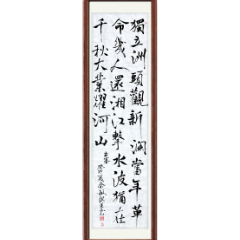 獨立洲頭觀新瀾當年革
命幾人還湘江擊水波猶在
千秋大業耀河山